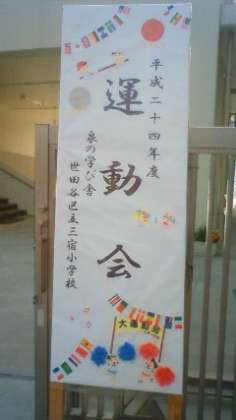 平成二十四年度
運動会
泉の学び舎
世田谷区立三宿小学校